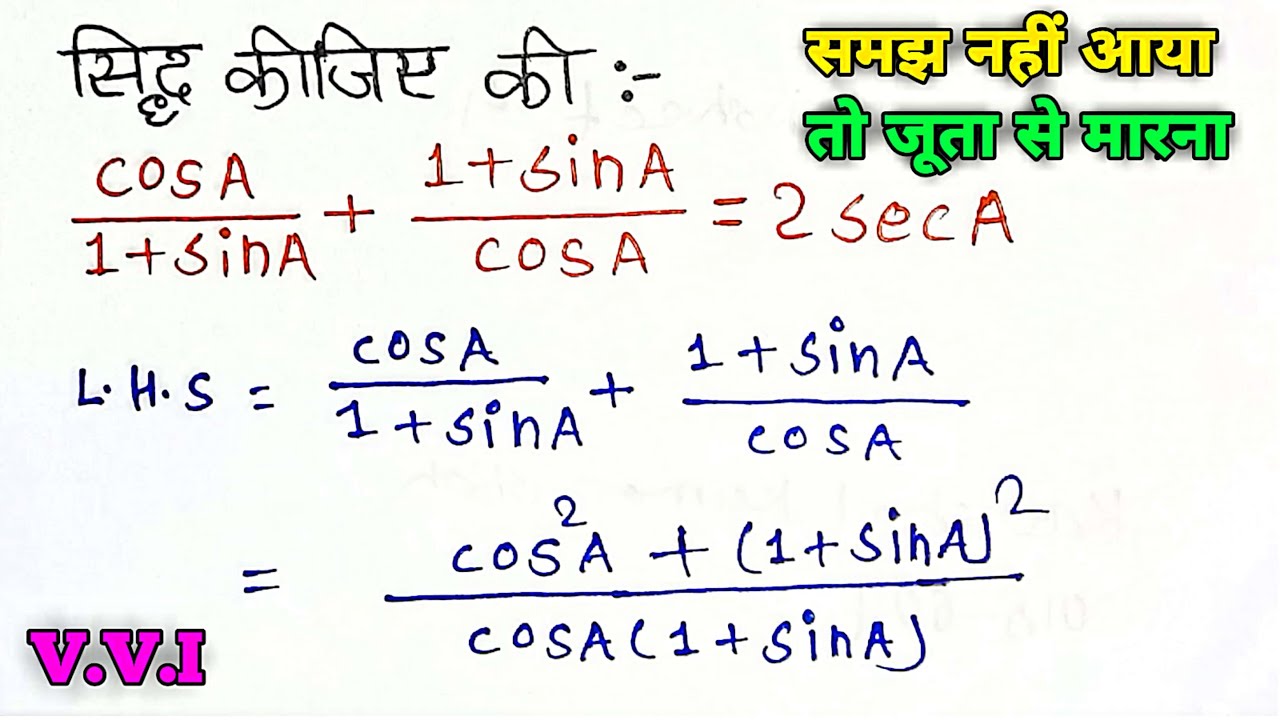 सिद्ध कीजिए की :-
समझ नहीं आया
तो जूता से मारना
cosA/(1+sinA) + (1+sinA)/cosA = 2 secA
L.H.S = cosA/(1+sinA) + (1+sinA)/cosA
= (cos²A + (1+sinA)²)/(cosA(1+sinA))
V.V.I